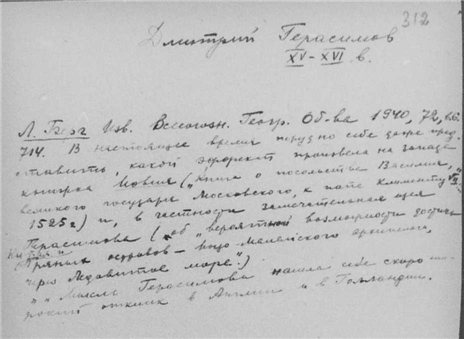 312
Дмитрий Герасимов
XV–XVI в.
Л. Берг Изв. Всесоюзн. Геогр. Об-ва 1940, 72, в.6
714. В настоящее время трудно себе даже пред-
ставить, какой эффект произвела на западе
книжка Иовия ("Книга о посольстве Василия,
великого государя Московского, к папе Клименту VII"
1525 г) и, в частности замечательная идея
Герасимова ("об вероятной возможности достичь
Пряных островов – Индо-Малайского архипелага,
через Ледовитое море")
"Мысль Герасимова нашла себе скоро ши-
рокий отклик в Англии и в Голландии.